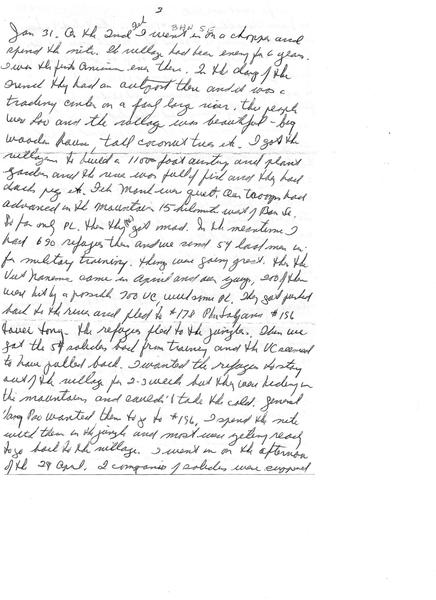 2
BHN SE
Jan 31. On the 2nd Oct I went in on a chopper and
spend the nite. The village had been enemy for 6 years.
I was the first American ever there. In the days of the
French they had an outpost there and it was a
trading center on a fairly large river. The people
were Lao and the village was beautiful - big
wooden houses, tall coconut trees etc. I got the
villagers to build a 1100 foot airstrip and plant
gardens and the river was full of fish and they had
ducks pigs etc. Feb March were quiet. Our troops had
advanced in the mountains 15 kilometers west of Ban Se.
So far only PL. then they got mad. In the meantime I
had 690 refugees then and we send 54 local men in
for military training. things were going great. then the
Viet Namese came in April and our guys, 200 of them
were hit by a possible 700 VC, with some PL. They got pushed
back to the river and fled to #178 Phu and #196
Houei Tong. The refugees fled to the jungle. Then we
got the 54 soldiers back from training and the VC seemed
to have pulled back. I wanted the refugees to stay
out of the village for 2-3 weeks but they were hiding in
the mountains and couldn't take the cold. General
Vang Pao wanted them to go to #196, I spend the nite
with them in the jungle and most were getting ready
to go back to the village. I went in on the afternoon
of the 29 April. 2 companies of soldiers were supposed